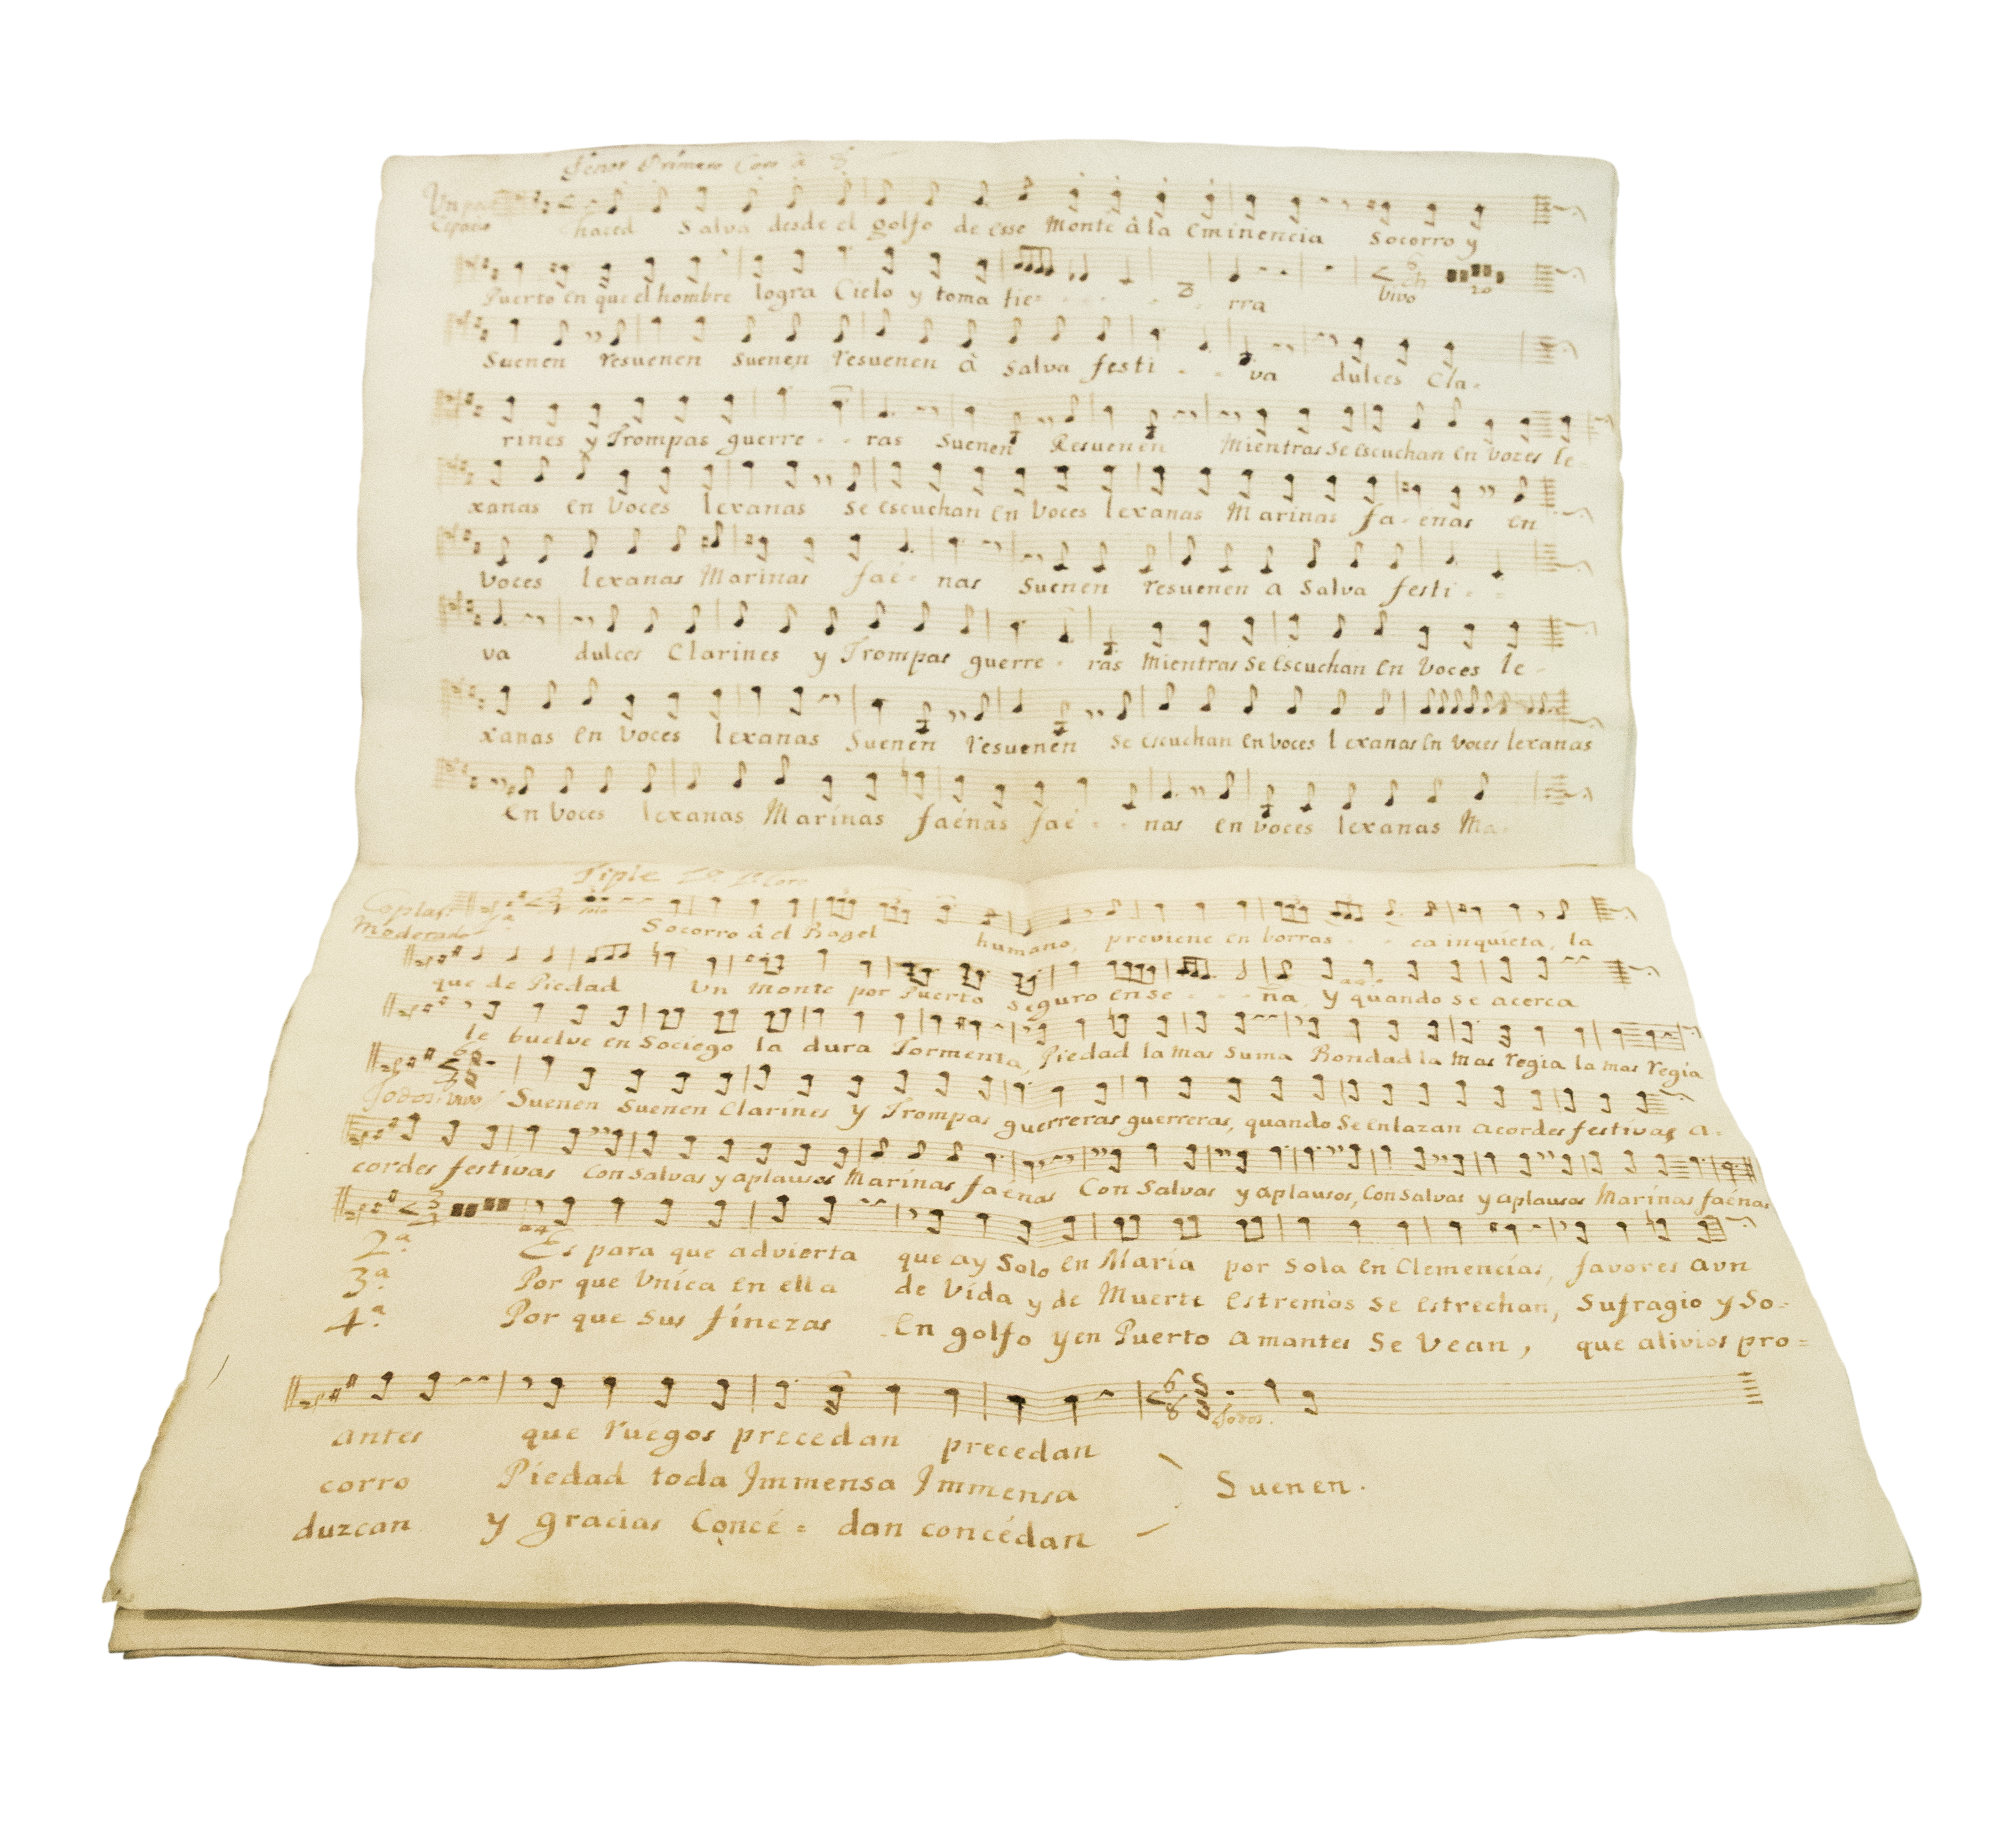 Tenor Primero Coro à 8
Un poco
Espacio
haced Salva desde el golfo de esse Monte à la eminencia Socorro y
Puerto en que el hombre logra Cielo y toma tie- - - - - rra Vivo 20
Suenen resuenen suenen resuenen à salva festi - - va dulces Cla-
rines y Trompas guerre - - ras Suenen Resuenen Mientras se escuchan en vozes le-
xanas en voces lexanas se escuchan en voces lexanas Marinas fa-énas en
voces lexanas Marinas faé - nas Suenen resuenen a salva festi - -
va dulces Clarines y Trompas guerre - ras Mientras se escuchan en voces le -
xanas en voces lexanas Suenen resuenen se escuchan en voces lexanas en voces lexanas
en voces lexanas Marinas faénas faé - - nas en voces lexanas Ma
Tiple Coro
Coplas
Moderado
1ª
Socorro â el Bagel humano, previene en borras - - ca inquieta, la
que de Piedad Un Monte por Puerto seguro ense - - - ña, y quando se acerca
le buelve en Sociego la dura Tormenta, Piedad la mas suma Bondad la mas regia la mas regia
6
8
Todos. Vivo Suenen Suenen Clarines y Trompas guerreras guerreras, quando Se enlazan acordes festivas a-
cordes festivas Con Salvas y aplausos Marinas faénas Con Salvas y aplausos, Con Salvas y aplausos Marinas faénas
2ª Es para que advierta que ay Solo en María por Sola en Clemencias, favores aun
3ª Por que Unica en ella de Vida y de Muerte estremos se estrechan, Sufragio y So-
4ª Por que sus finezas En golfo y en Puerto amantes Se Vean, que alivios pro=
6
8
Todos.
antes que ruegos precedan precedan
corro Piedad toda Immensa Immensa Suenen.
duzcan y gracias Concé = dan concédan